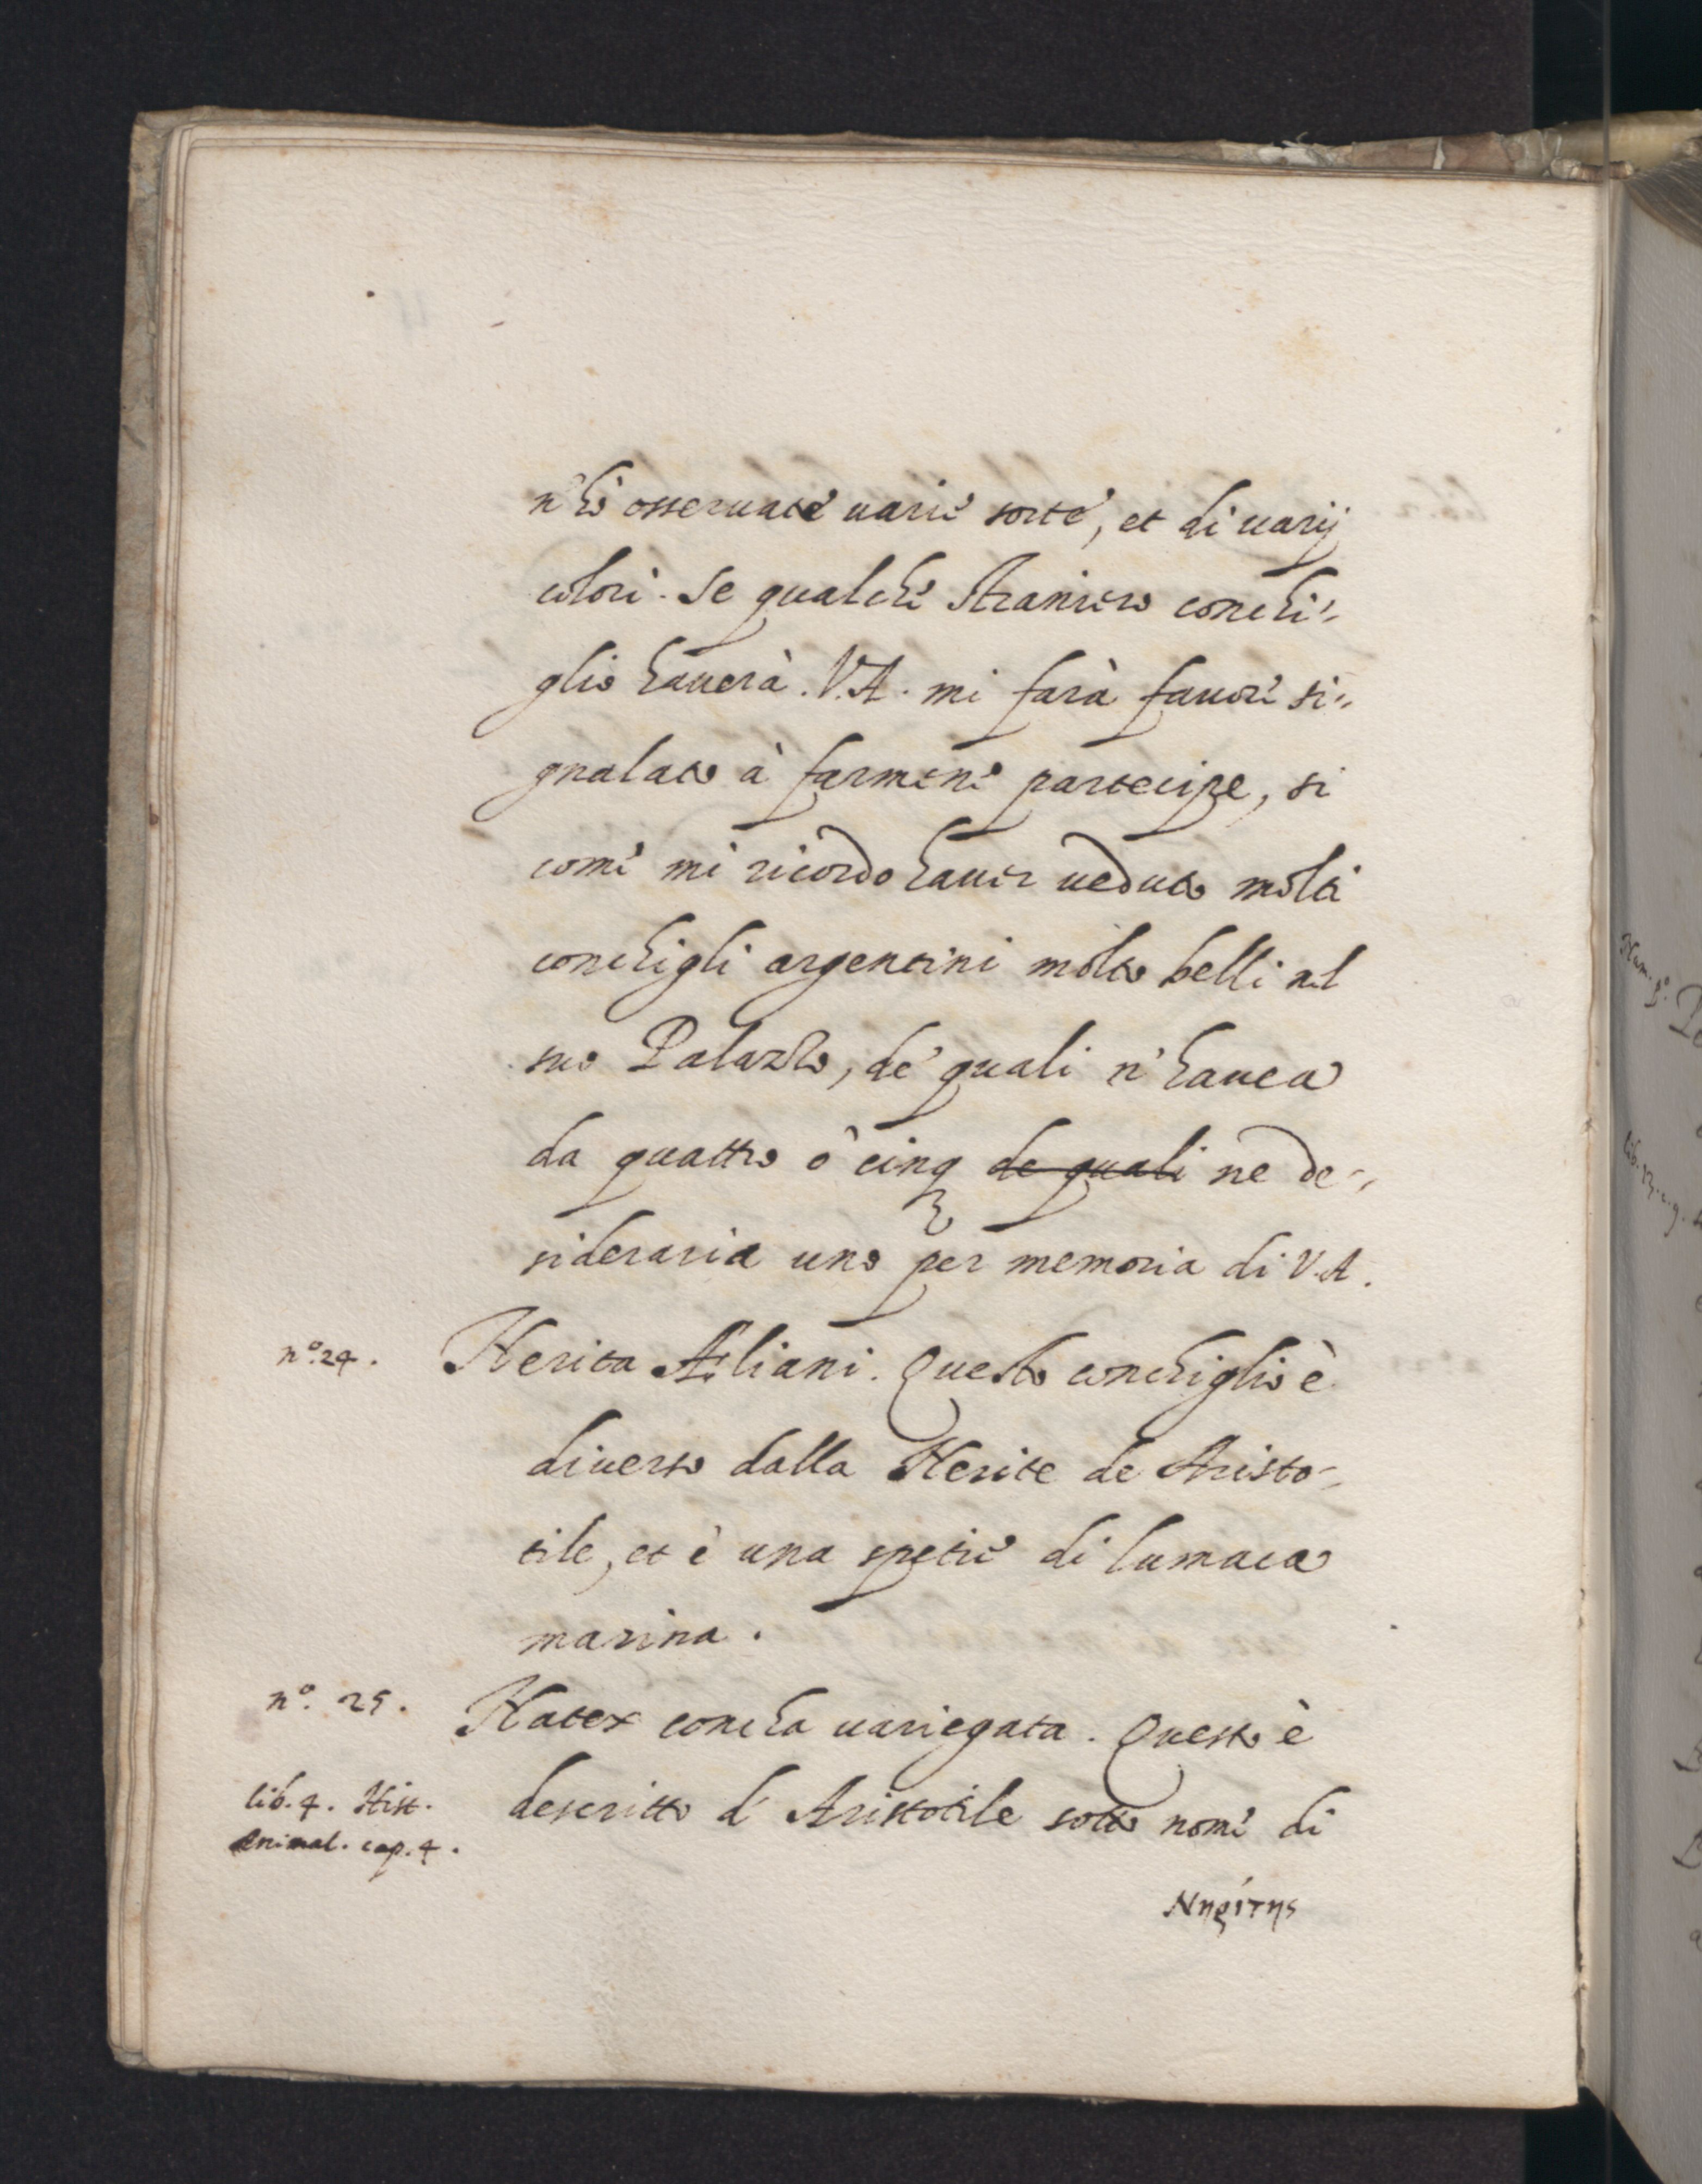 n'hò osseruate uarie sorte, et di uarij
colori. Se qualche straniero conchi=
glio hauerà. V.A. mi farà fauore si=
gnalato à farmene partecipe, si
come mi ricordo hauer ueduto molti
conchigli argentini molto belli nel
suo Palazzo, de' quali n'hauea
da quattro ò cinq de quali ne de=
sideraria uno per memoria di V.A.
n.º 24. Nerita Æliani. Questo conchiglio è
diuerso dalla Nerite de Aristo=
tile, et è una spetie di lumaca
marina.
n.º 25. Natex concha uariegata. Questo è
lib. 4. Hist. descritto d'Aristotile sotto nome di
Animal. cap. 4.
Νηρίτης